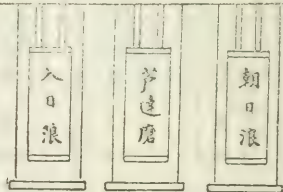 朝日浪
芦達磨
入日浪